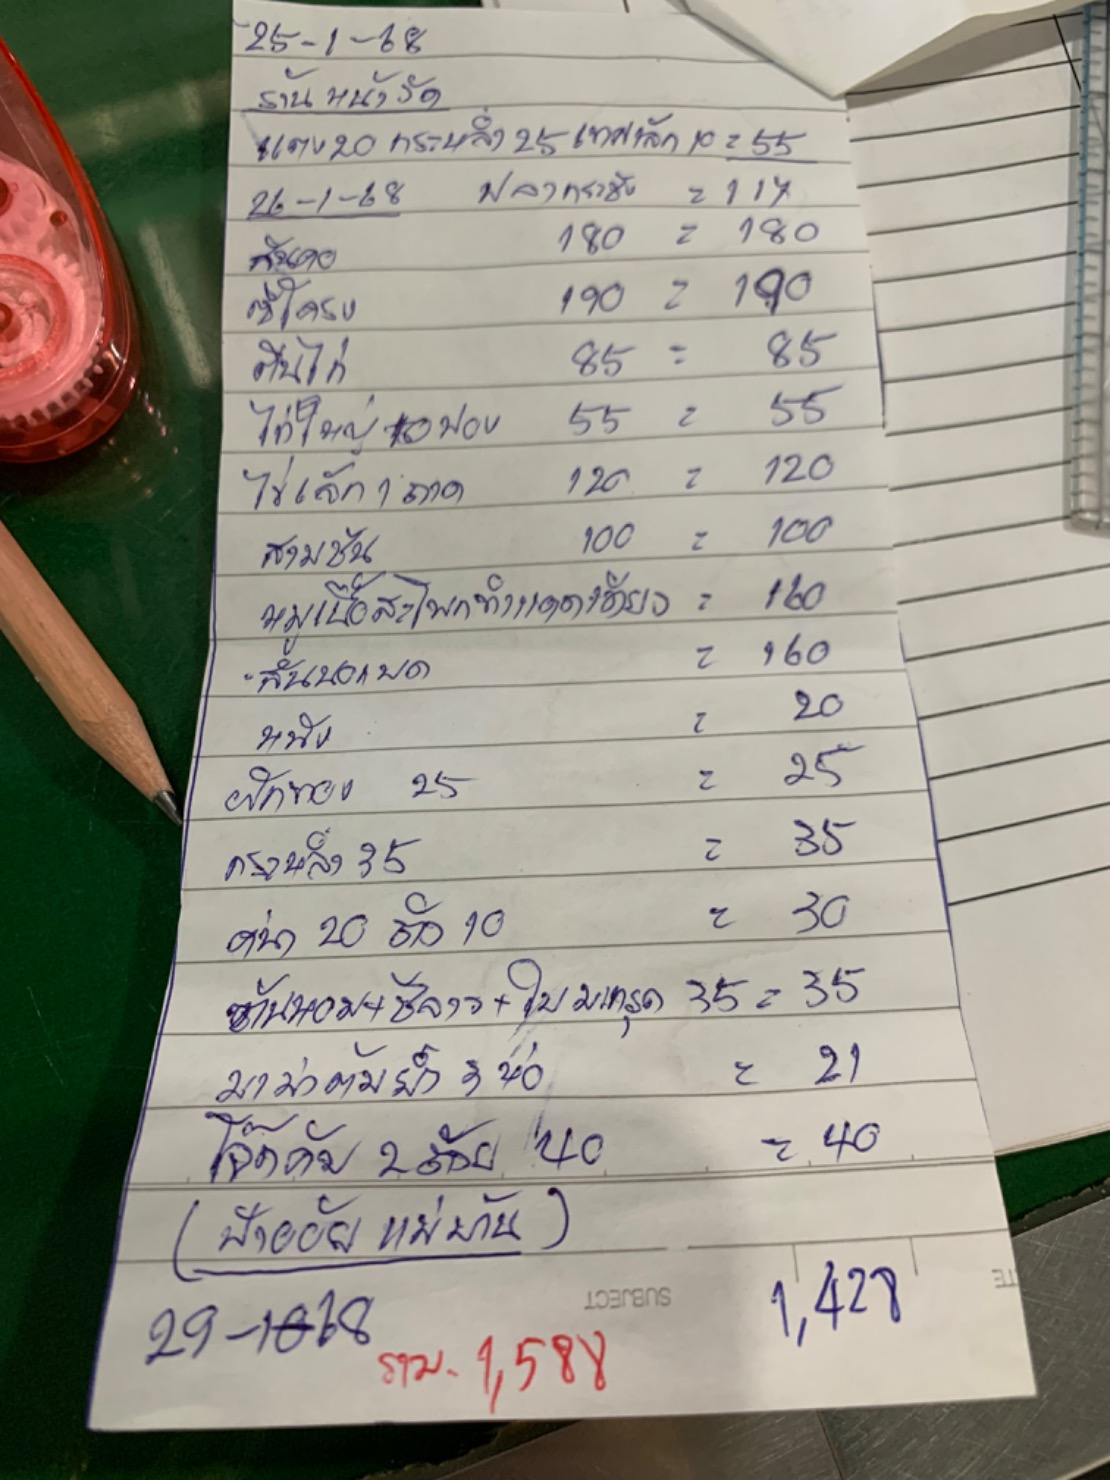 25-1-68
ร้านหน้าวัด
แตง 20 กระหล่ำ 25 เทศเล็ก 10 = 55
26-1-68 ปลากระชัง = 117
สันคอ 180 = 180
ซี่โครง 190 = 190
ตีนไก่ 85 = 85
ไก่ใหญ่ 10 ฟอง 55 = 55
ไข่เล็ก 1 ถาด 120 = 120
สามชั้น 100 = 100
หมูเนื้อสะโพกทำแดดเดียว = 160
สันนอกบด = 160
หนัง = 20
ฟักทอง 25 = 25
กระหล่ำ 35 = 35
คะน้า 20 ถั่ว 10 = 30
ต้นหอม+ชีลาว+ใบมะกรูด 35 = 35
มาม่าต้มยำ 3 ห่อ = 21
โจ๊กคัพ 2 ถ้วย 40 = 40
(ป้าออย แม่บ้าน)
SUBJECT 1,428
29-1-68
รวม. 1,588